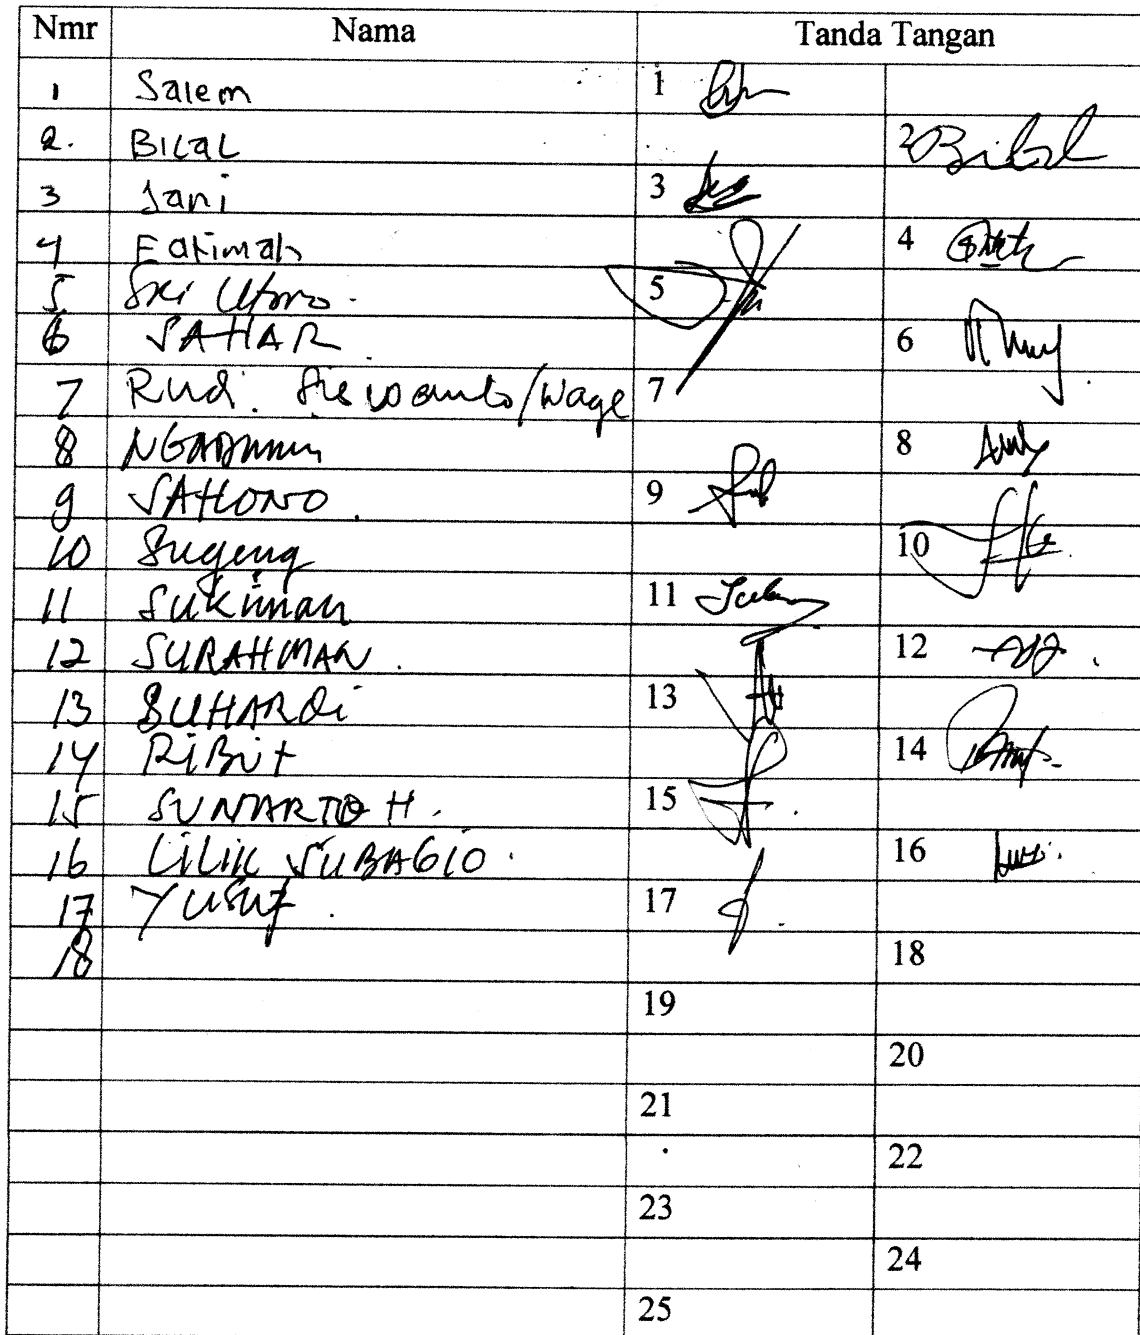 Nmr Nama Tanda Tangan
1 Salem 1
2. BILAL 2 Bilal
3 Jani 3
4 Fatimah 4
5 Sri Utomo. 5
6 SAHAR 6
7 Rudi. /Wage 7
8 8
9 SAHONO. 9
10 Sugeng 10
11 SUKiman 11
12 SURAHMAN. 12
13 SUHARDi 13
14 RiBut 14
15 SUNARTO H. 15
16 LiLiK SUBAGIO. 16
17 Yusuf. 17
18 18
19
20
21
22
23
24
25